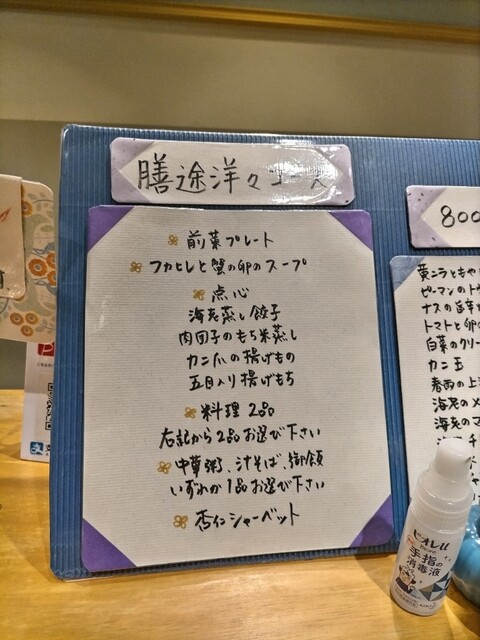 膳途洋々コース
前菜プレート
フカヒレと蟹の卵のスープ
点心
海老蒸し餃子
肉団子のもち米蒸し
カニ爪の揚げもの
五目入り揚げもち
料理 2品
右記から2品お選び下さい
中華粥、汁そば、御飯
いずれか1品お選び下さい
杏仁シャーベット
800
黄ニラともや
ピーマンの
ナスの
トマトと卵の
白菜のクリー
カニ玉
春雨の上
海老の
海老のマ
海老
ビオレu
手指の
消毒液